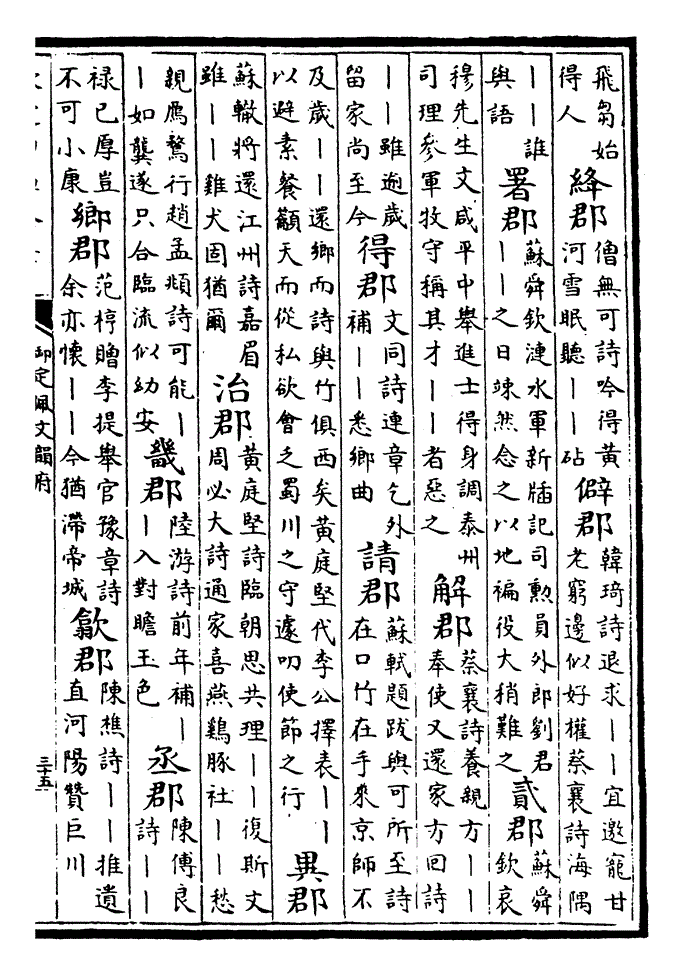 飛芻始
得人
絳郡
僧無可詩吟得黃
河雪眠聽——砧
僻郡
韓琦詩退求——宜邀寵甘
老窮邊似好權蔡襄詩海隅
——誰
與語
署郡
蘇舜欽漣水軍新牐記司勲員外郎劉君
——之日竦然念之以地褊役大稍難之
貳郡
蘇舜
欽哀
穆先生文咸平中舉進士得身調泰州
司理參軍牧守稱其才——者惡之
解郡
蔡襄詩養親方——
奉使又還家方回詩
——雖逾歲
留家尚至今
得郡
文同詩連章乞外
補——悉鄉曲
請郡
蘇軾題跋與可所至詩
在口竹在手來京師不
及歲——還鄉而詩與竹俱西矣黃庭堅代李公擇表——
以避素餐籲天而從私欲會之蜀川之守遽叨使節之行
異郡
蘇轍將還江州詩嘉眉
雖——雞犬固猶爾
治郡
黃庭堅詩臨朝思共理——復斯文
周必大詩通家喜燕鷄豚社——愁
親鴈鶩行趙孟頫詩可能—
—如龔遂只合臨流似幼安
畿郡
陸游詩前年補—
—入對瞻玉色
丞郡
陳傅良
詩——
祿已厚豈
不可小康
鄉郡
范梈贈李提舉官豫章詩
余亦懷——今猶滯帝城
歙郡
陳樵詩——推遺
直河陽贊巨川
御定佩文韻府
三十五